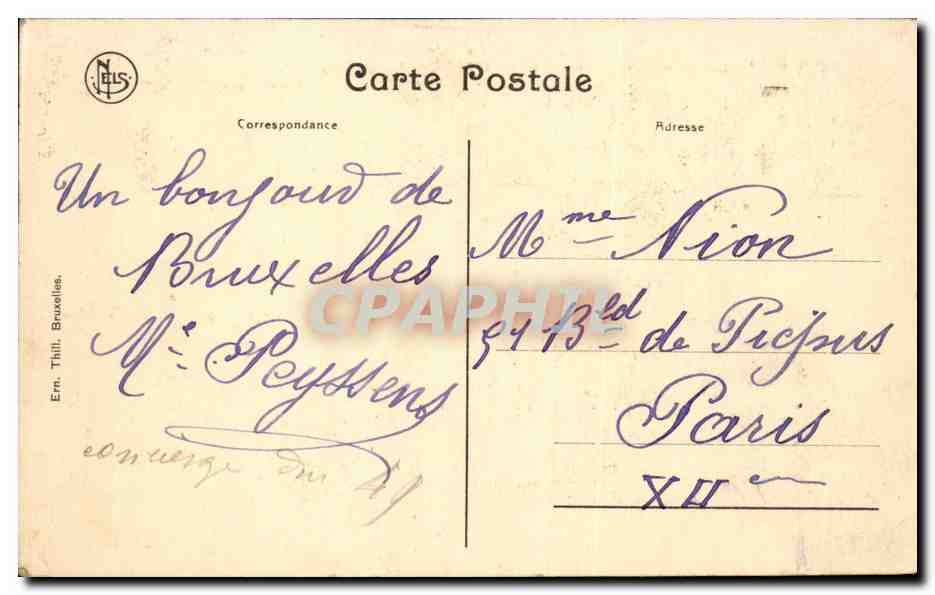 NELS
Carte Postale
Correspondance
Adresse
Un bonjour de
Bruxelles
Me Peyssens
concierge du
Mme Nion
Bld de Picpus
Paris
XII em
Ern. Thill. Bruxelles.
CPAPHIL